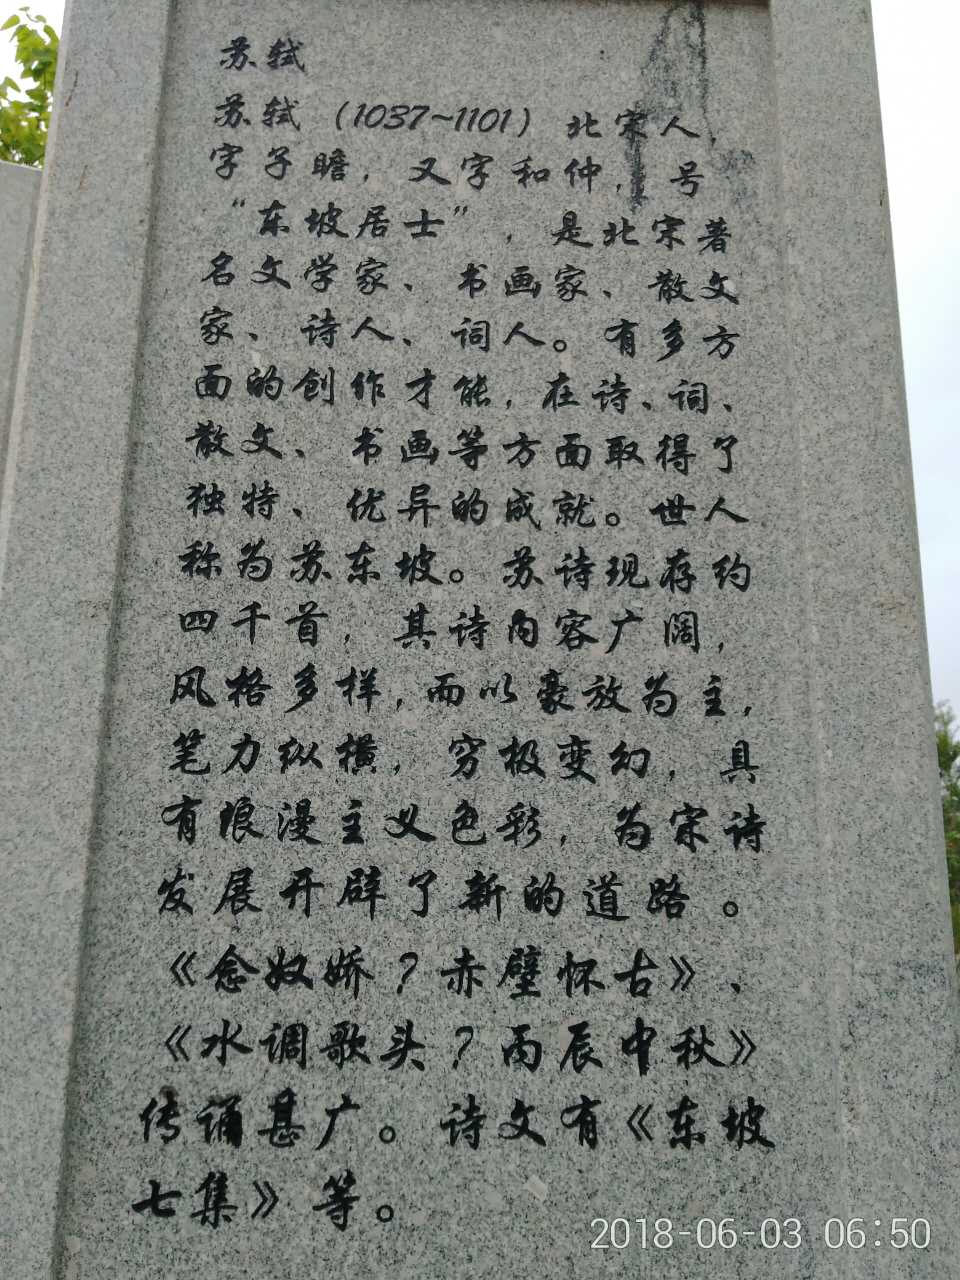 苏轼
苏轼（1037~1101）北宋人，
字子瞻，又字和仲，号
“东坡居士”，是北宋著
名文学家、书画家、散文
家、诗人、词人。有多方
面的创作才能，在诗、词、
散文、书画等方面取得了
独特、优异的成就。世人
称为苏东坡。苏诗现存约
四千首，其诗内容广阔，
风格多样，而以豪放为主，
笔力纵横，穷极变幻，具
有浪漫主义色彩，为宋诗
发展开辟了新的道路。
《念奴娇？赤壁怀古》、
《水调歌头？丙辰中秋》
传诵甚广。诗文有《东坡
七集》等。
2018-06-03 06:50